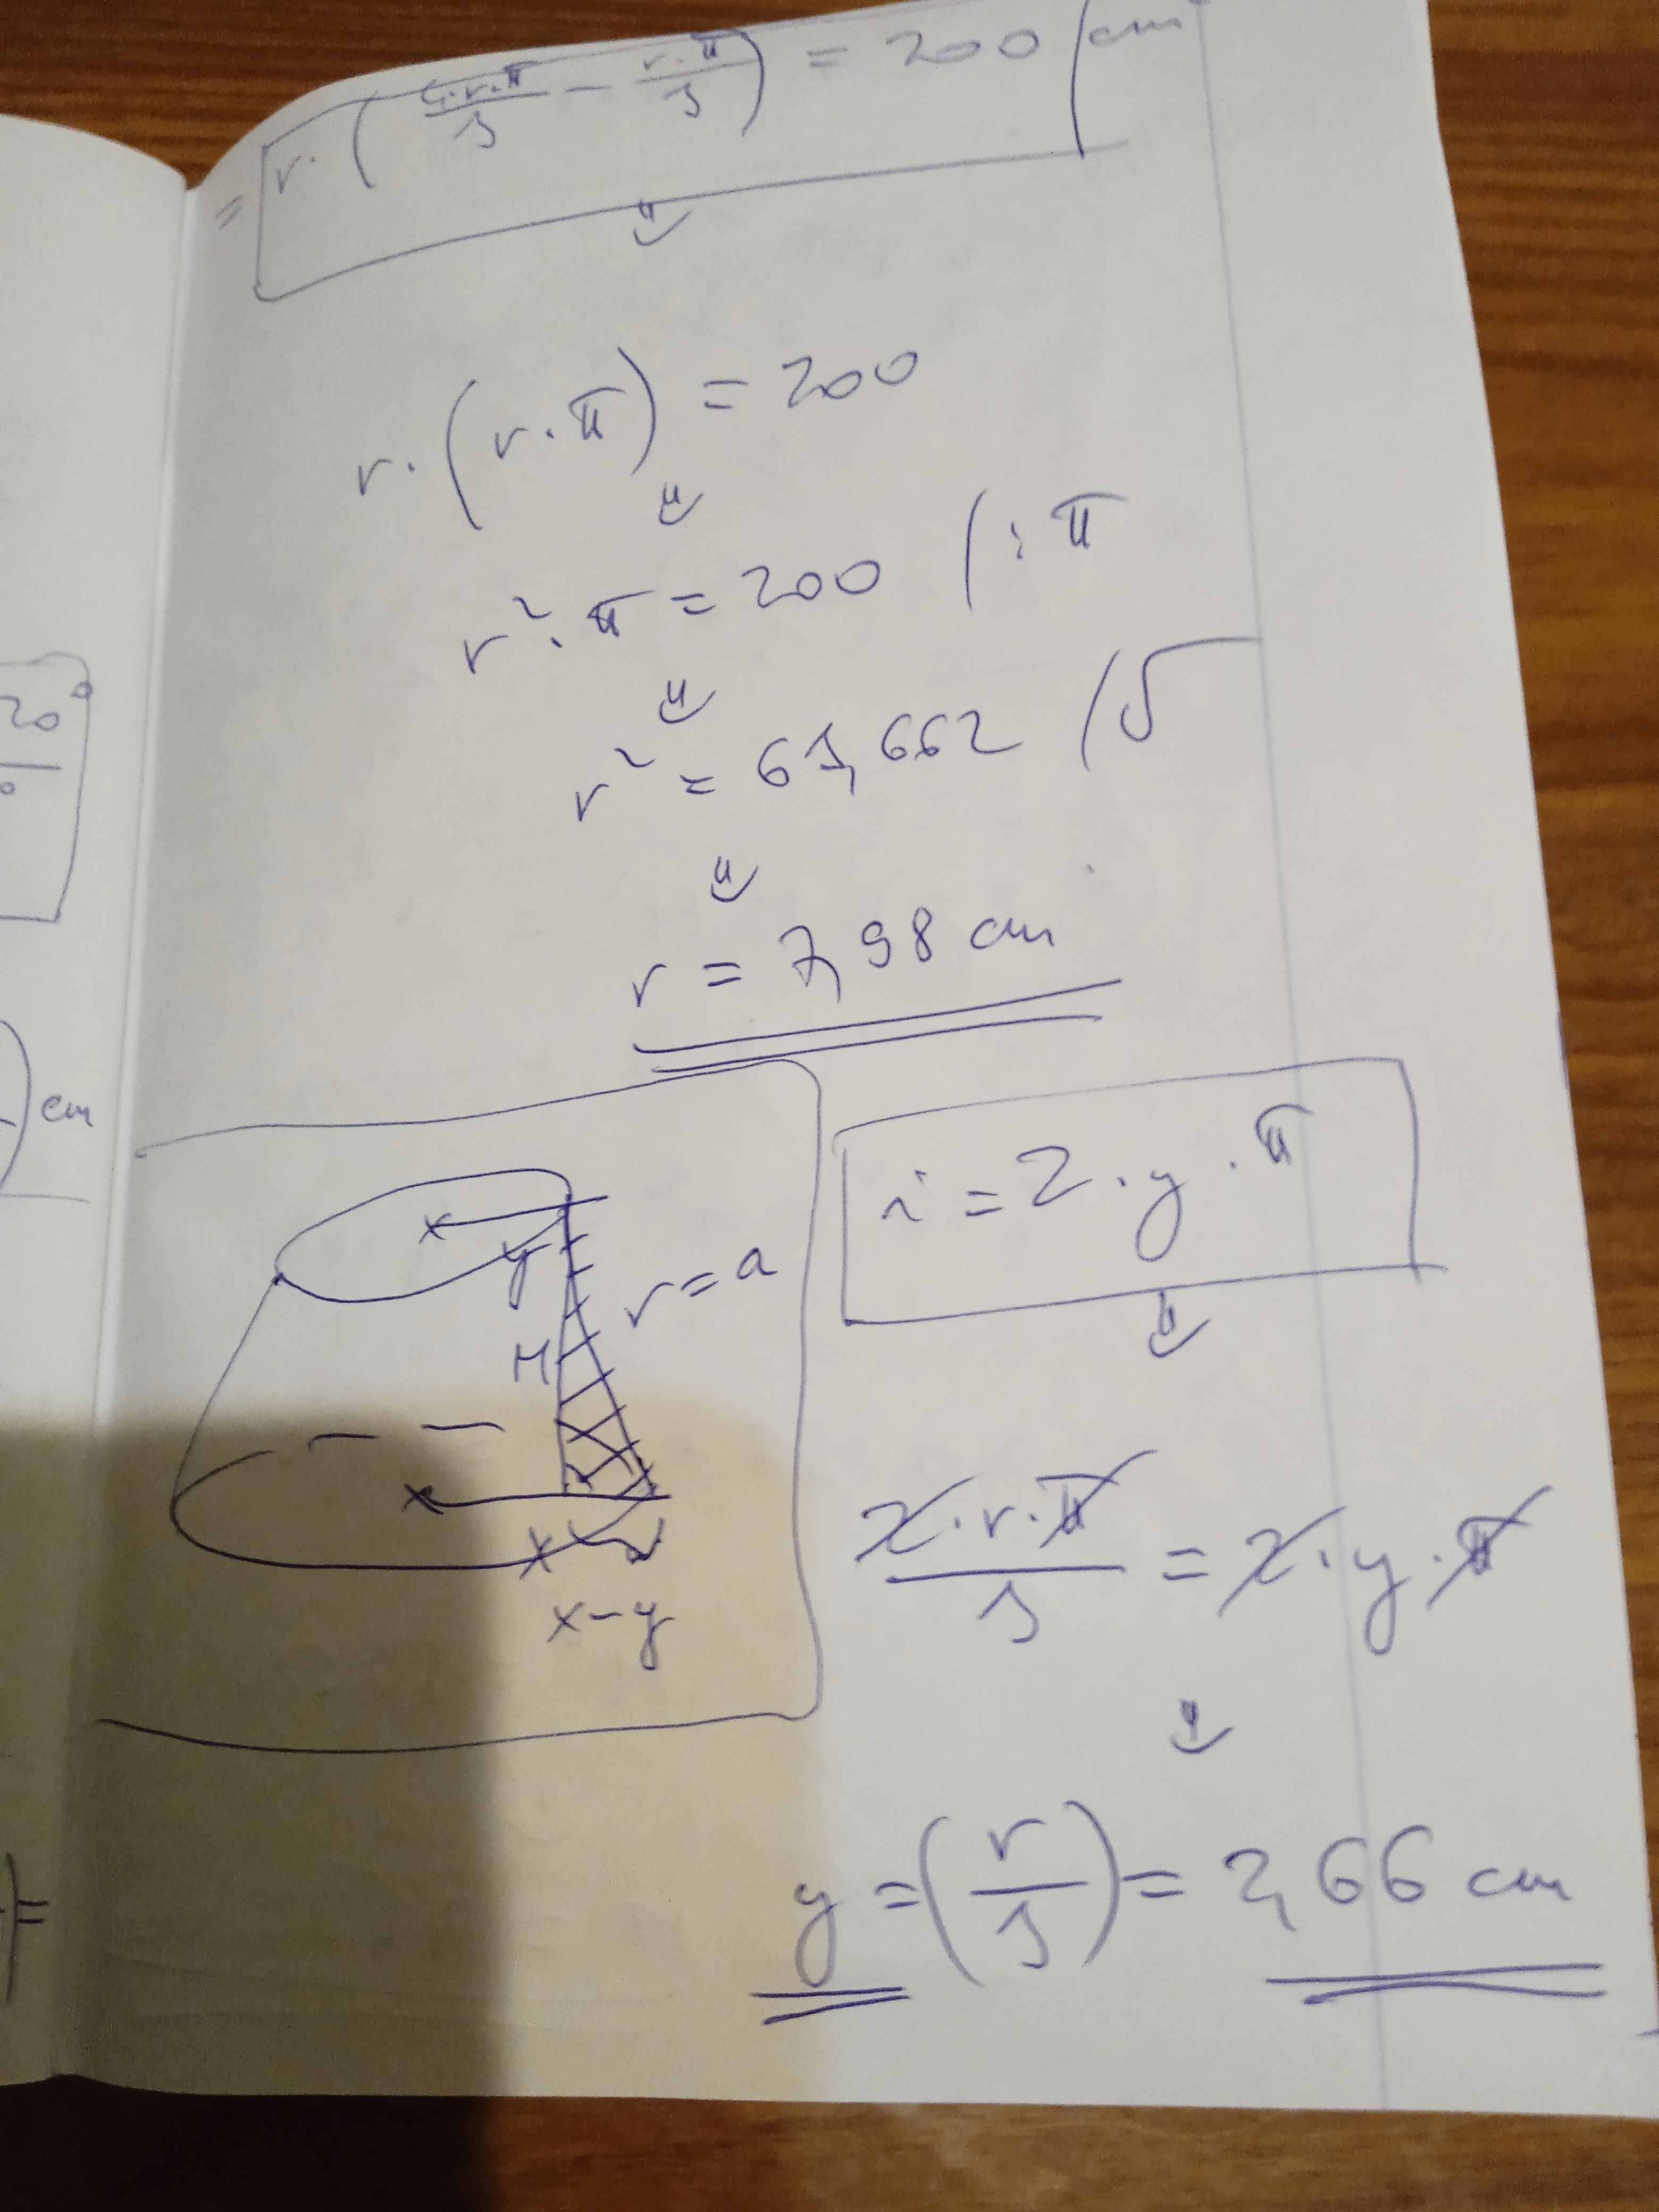 = r · ( 4·r·π/3 − r·π/3 ) = 200 / cm
r · ( r · π ) = 200
r² · π = 200 / : π
20
r² = 63,662 / √
r = 7,98 cm
) cm
i = 2 · y · π
x
y
r = a
M
x
x − y
2 · r · π / 3 = 2 · y · π
y = ( r/3 ) = 2,66 cm
) =